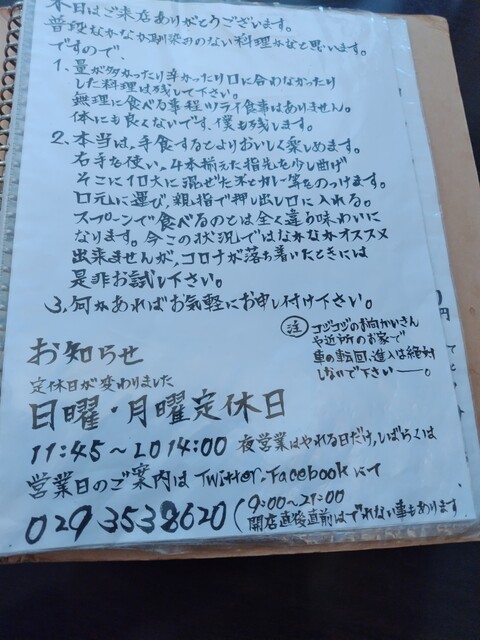 本日はご来店ありがとうございます。
普段なかなか馴染みのない料理かなと思います。
ですので、
1、量が多かったり辛かったり口に合わなかったり
した料理は残して下さい。
無理に食べる事程ツライ食事はありません。
体にも良くないです、僕も残します。
2、本当は、手食するとよりおいしく楽しめます。
右手を使い、4本揃えた指先を少し曲げ
そこに1口大に混ぜた米とカレー等をのっけます。
口元に運び、親指で押し出し口に入れる。
スプーンで食べるのとは全く違う味わいに
なります。今この状況ではなかなかオススメ
出来ませんが、コロナが落ち着いたときには
是非お試し下さい。
3、何かあればお気軽にお申し付け下さい。
注 コジコジのお向かいさん
や近所のお家で
車の転回、進入は絶対
しないで下さい――。
円
お知らせ
定休日が変わりました
日曜・月曜定休日
11:45～LO14:00 夜営業はやれる日だけ、しばらくは
営業日のご案内はTwitter、Facebookにて
029 3538620 (9:00～21:00
開店直後直前はでれない事もあります